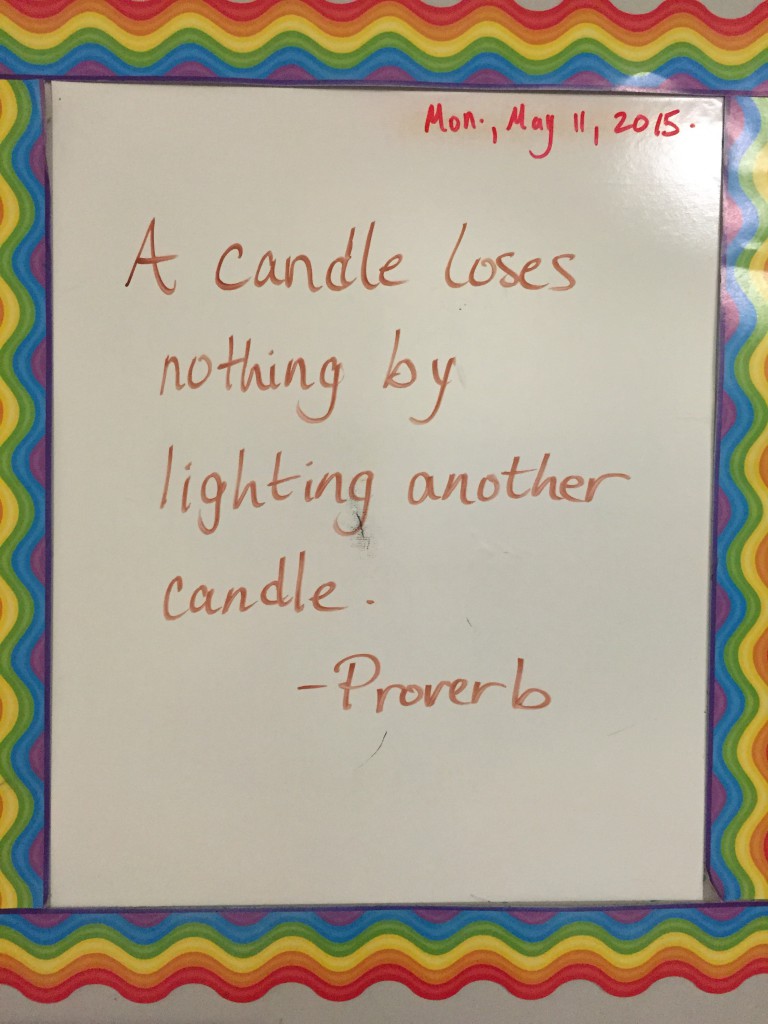 Mon., May 11, 2015.
A candle loses
nothing by
lighting another
candle.
-Proverb